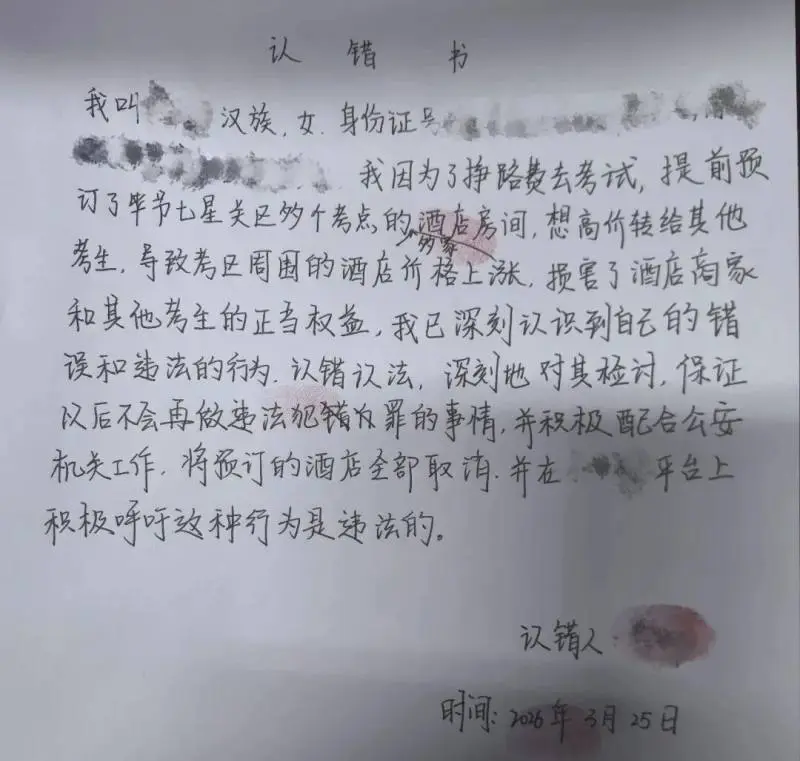 认错书
我叫 汉族,女.身份证号
我因为了挣路费去考试,提前预
订了毕节七星关区多个考点的多家酒店房间,想高价转给其他
考生,导致考区周围的酒店价格上涨,损害了酒店商家
和其他考生的正当权益,我已深刻认识到自己的错
误和违法的行为.认错认法,深刻地对其检讨,保证
以后不会再做违法犯罪的事情,并积极配合公安
机关工作.将预订的酒店全部取消.并在 平台上
积极呼吁这种行为是违法的。
认错人:
时间:2026年3月25日